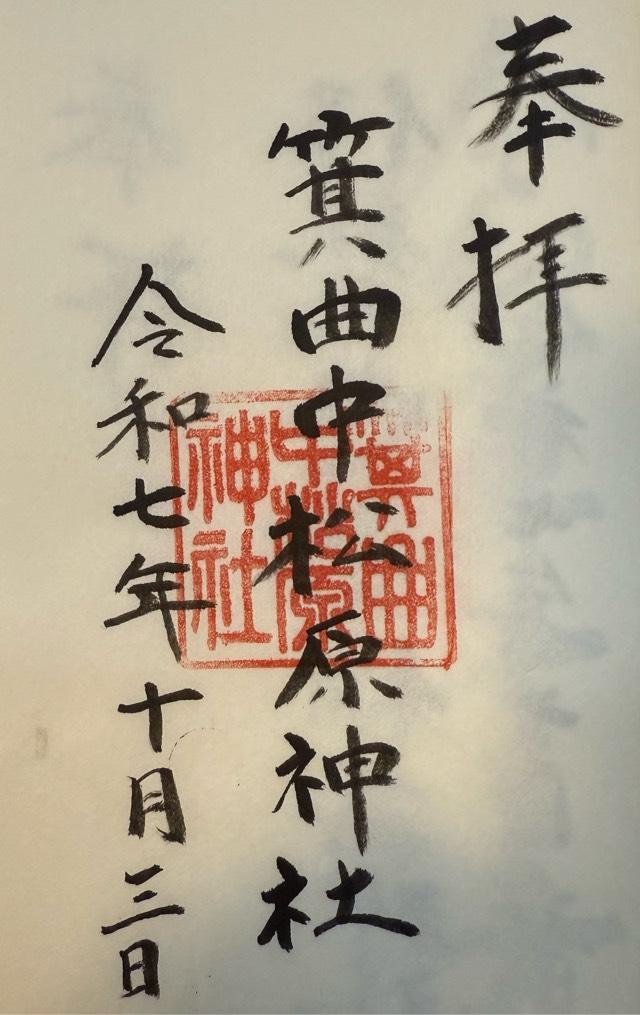 奉拝
箕曲中松原神社
令和七年十月三日
箕曲
中松原
神社